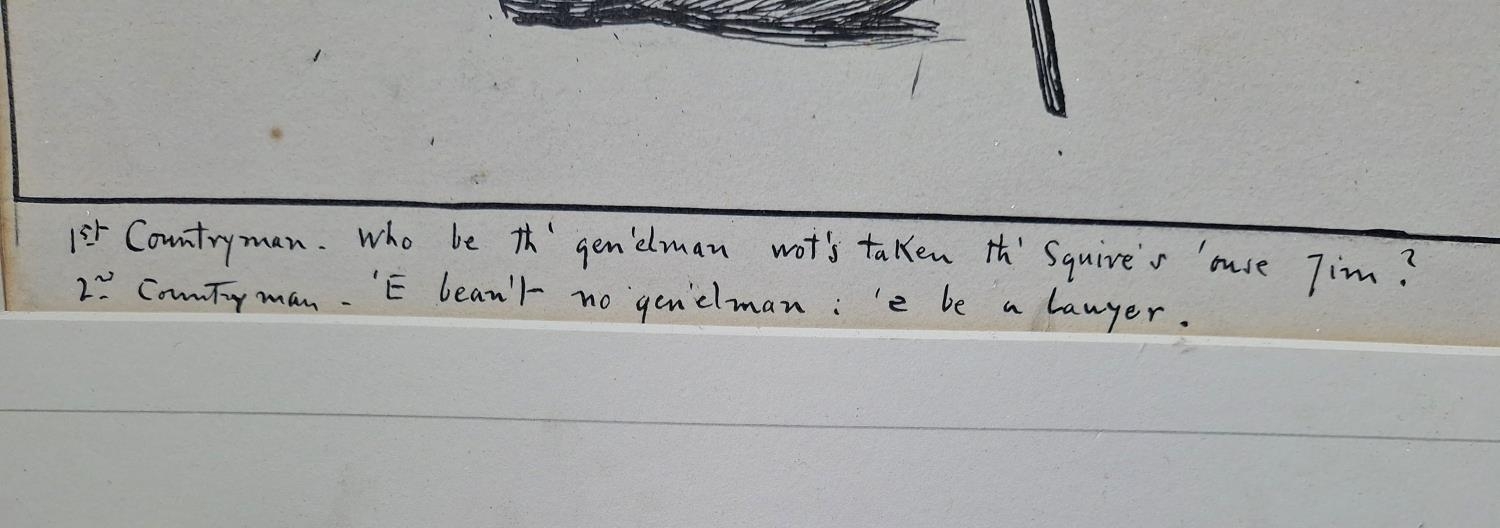 1st Countryman. Who be th' gen'elman wot's taken th' Squire's 'ouse Jim?
2nd Countryman - 'E bean't no gen'elman : 'e be a lawyer.